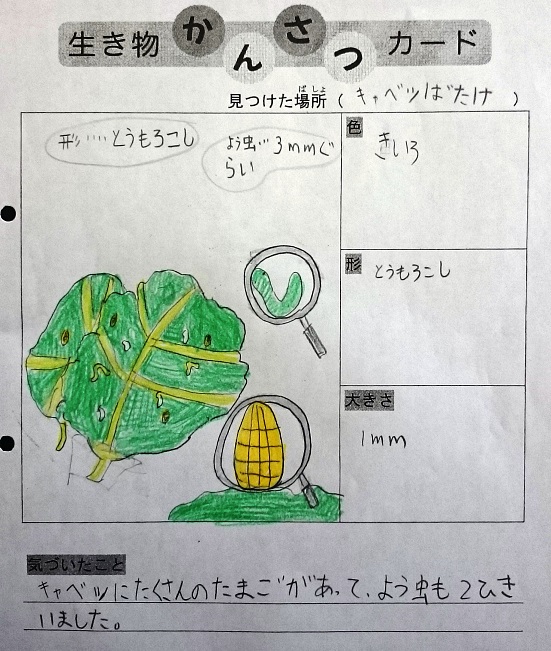 生き物かんさつカード
見つけた場所（キャベツばたけ）
ばしょ
形‥‥とうもろこし
よう虫‥3mmぐ
らい
色
きいろ
形
とうもろこし
大きさ
1mm
気づいたこと
キャベツにたくさんのたまごがあって、よう虫も2ひき
いました。